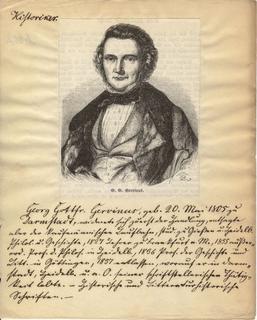 Historiker.
G. G. Gervinus.
Georg Gottfr. Gervinus, geb. 20. Mai 1805 zu
Darmstadt, widmete sich zuerst der Handlung, entsagte
aber der kaufmännischen Laufbahn, stud. z. Gießen u. Heidelb.
Philol. u. Geschichte, 1827 Lehrer zu Frankfurt a M., 1835 außer-
ord. Prof. d. Philos. in Heidelb., 1836 Prof. der Geschichte und
Litt. in Göttingen, 1837 entlassen, worauf er in Darm-
stadt, Heidelb. u. a. O. seiner schriftstellerischen Thätig-
keit lebte. — Historische und Litteraturhistorische
Schriften. —